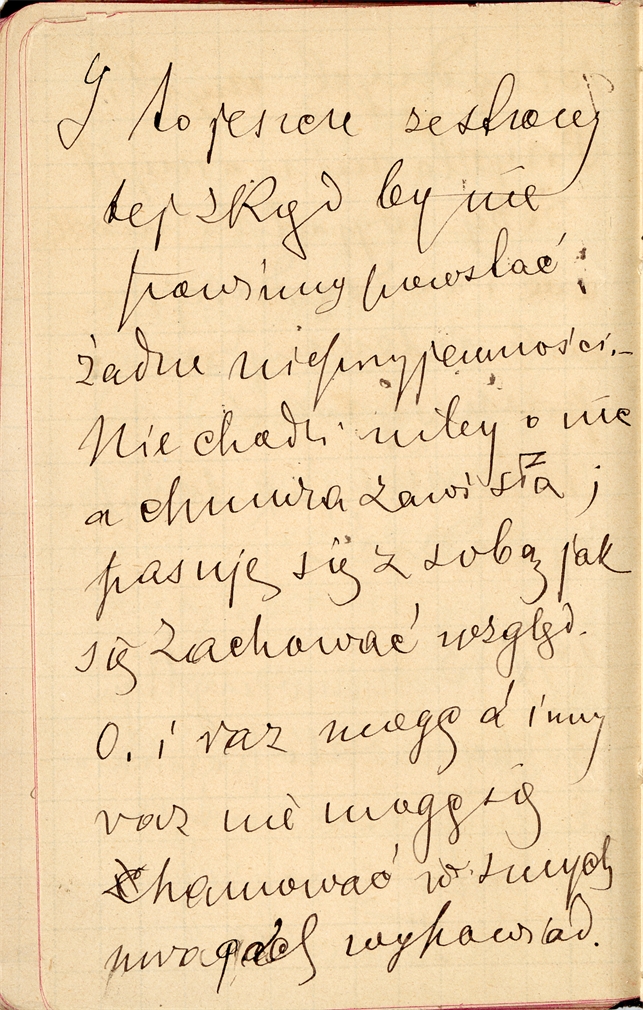 I to jeszcze ze strony
tej skąd by nie
powinny powstać
żadne nieprzyjemności.–
Nie chodzi niby o nic
a chmura zawisła i
pasuję się z sobą jak
się zachować względ.
O. i raz mogę a inny
raz nie mogę się
hamować w swych
uwagach wypowiad.